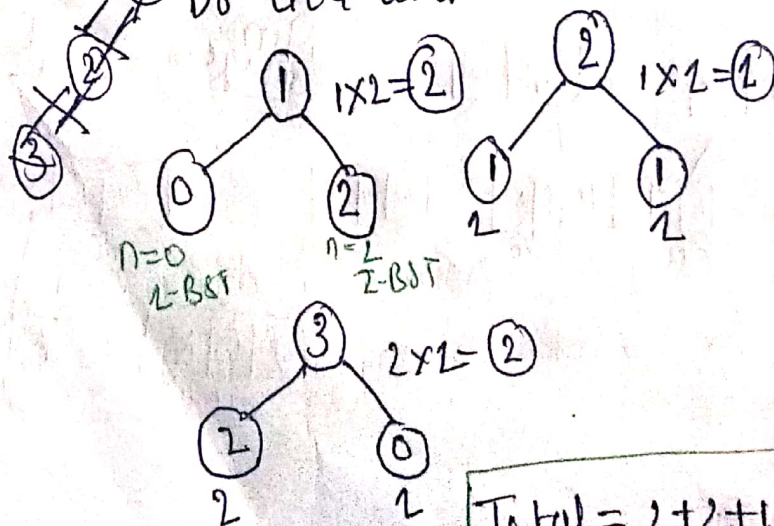 Do
2
3
1
1x2=2
0
2
n=0
1-BST
n=2
2-BST
2
1x1=1
1
1
1
1
3
2x1=2
2
0
2
1
Total = 2+2+1